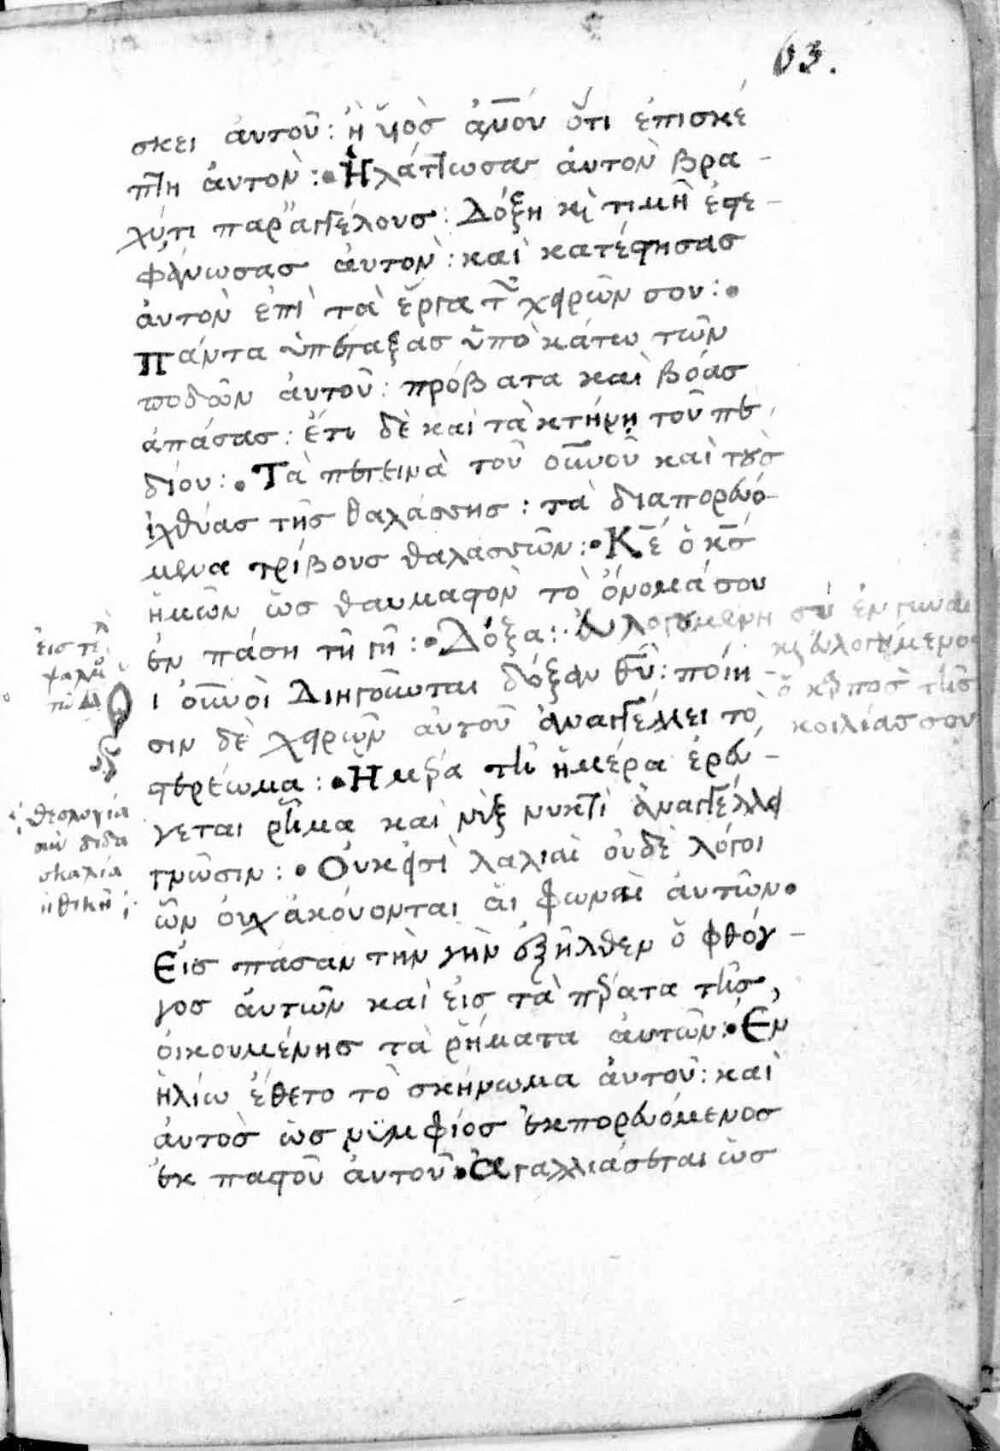 63.
σκει ἀυτοῦ: ἢ ὑιὸσ ἀν̅ου ὅτι ἐπισκέ
πτη ἀυτὸν :• Ἠλάττωσασ ἀυτὸν βρα -
χύτι παρ' ἀγγέλουσ : Δόξη κ̀ τιμῆ ἐστε -
φάνωσασ ἀυτὸν : καὶ κατέστησασ
ἀυτὸν ἐπὶ τὰ ἔργα τῶν χειρῶν σου :•
Πάντα ὑπέταξασ ὑπὸ κάτω τῶν
ποδῶν ἀυτοῦ: πρόβατα καὶ βόασ
ἁπάσασ : ἔτι δὲ καὶ τὰ κτήνη τοῦ πε
δίου :• Τὰ πετεινὰ τοῦ ου̅νοῦ καὶ τοὺσ
ἰχθύασ τῆσ θαλάσσησ : τὰ διαπορευό-
μενα τρίβουσ θαλασσῶν :• Κ̅ε ὁ κ̅σ
ἡμῶν ὡσ θαυμαστὸν τὸ ὄνομά σου
ἐν πάση τῆ γῆ :• Δόξα : ἐυλογημένη σὺ ἐν γυναι
κ̀ ἐυλογημένοσ
ὁ καρπὸσ τῆσ
κοιλίασ σου
εἰσ τέλ
ψαλμ
ι ου̅νοὶ Διηγοῦνται δόξαν θ̅υ : ποίη -
σιν δὲ χειρῶν ἀυτοῦ ἀναγγέλλει τὸ
στερέωμα :• Ἡμέρα τῆ ἡμέρα ἐρεύ -
γεται ῥῆμα καὶ νὺξ νυκτὶ ἀναγγέλλει
γνῶσιν :• Οὐκ εἰσὶ λαλιαὶ ὀυδὲ λόγοι
ὧν ὀυχ ἀκόυονται ἁι φωναὶ ἀυτῶν•
Ἐισ πάσαν τὴν γὴν ἐξῆλθεν ὁ φθόγ -
γοσ ἀυτῶν καὶ ἐισ τὰ πέρατα τῆσ
ὀικουμένησ τὰ ῥήματα ἀυτῶν :• Ἐν
ἡλίω ἔθετο τὸ σκήνωμα ἀυτοῦ : καὶ
ἀυτὸσ ὡσ νϋμφίοσ ἐκπορευόμενοσ
ἐκ παστοῦ ἀυτοῦ •Ἀγαλλιάσεται ὡσ
θεολογία
σὺν διδα
σκαλία
ἠθικῆ :